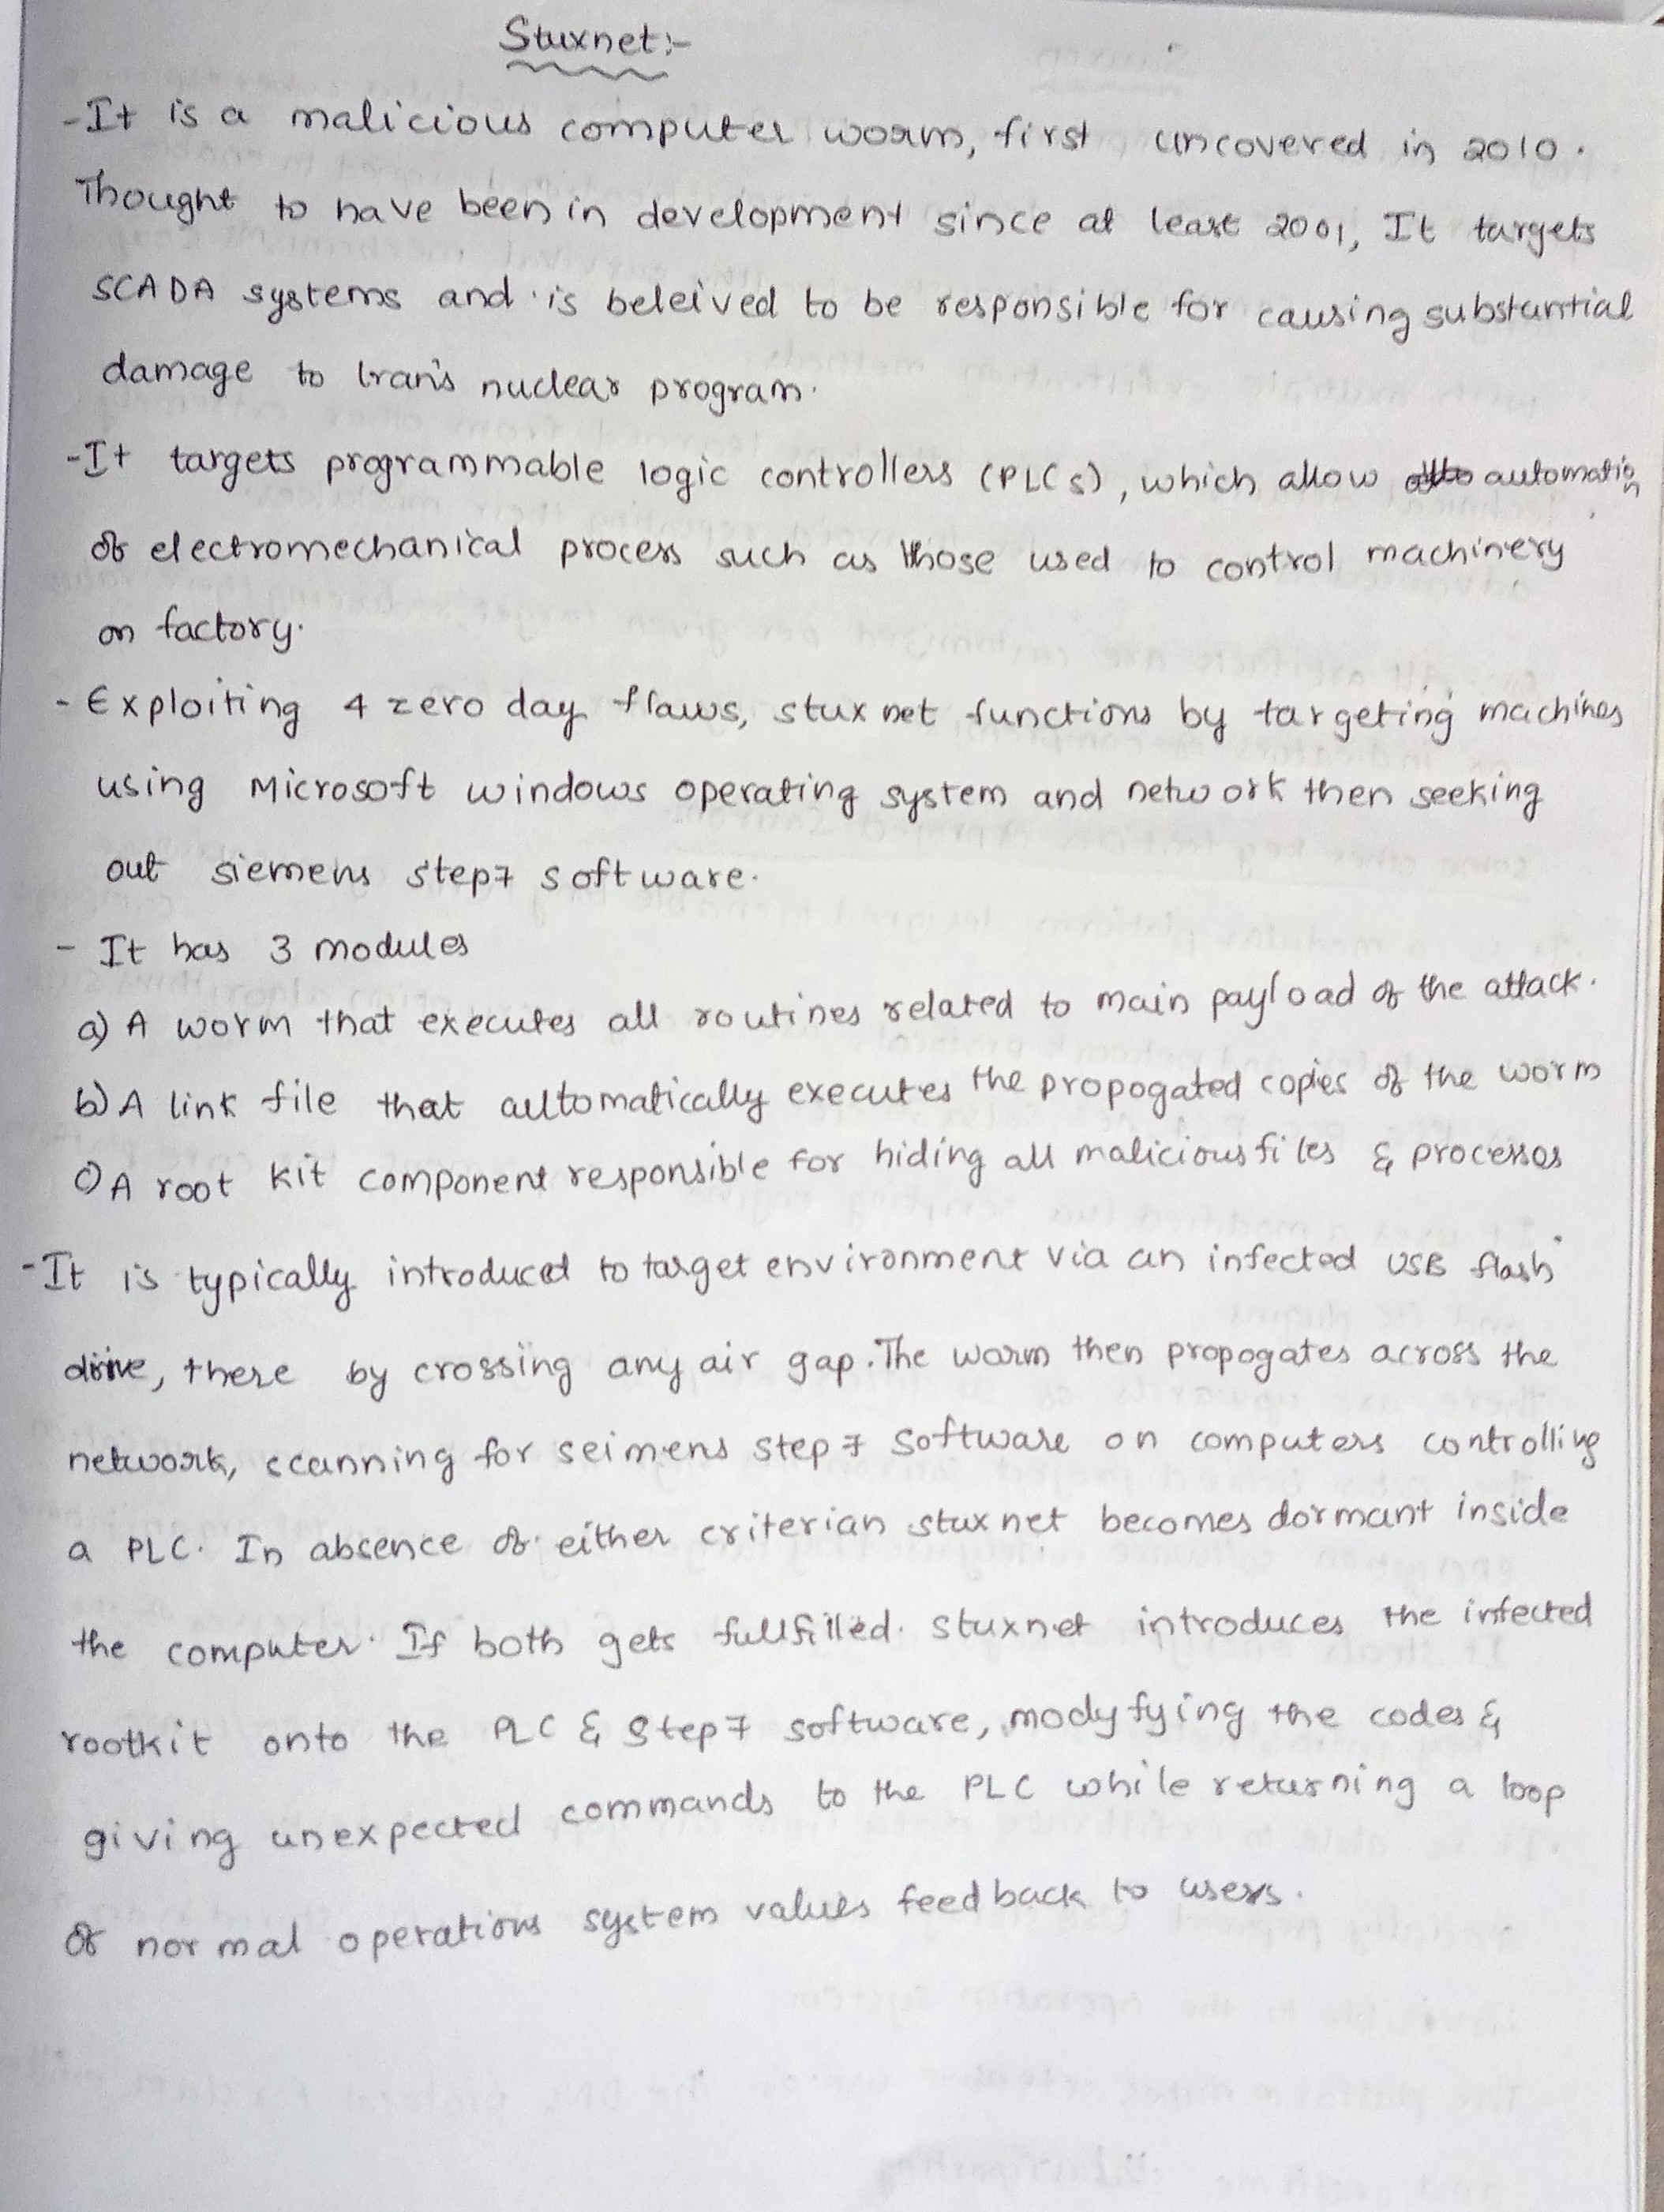 Stuxnet:-
-It is a malicious computer worm, first uncovered in 2010.
Thought to have been in development since at least 2001, It targets
SCADA systems and is beleived to be responsible for causing substantial
damage to Iran's nuclear program.
-It targets programmable logic controllers (PLCs), which allow automation
of electromechanical process such as those used to control machinery
on factory.
- Exploiting 4 zero day flaws, stuxnet functions by targeting machines
using Microsoft windows operating system and network then seeking
out siemens step7 software.
- It has 3 modules
a) A worm that executes all routines related to main payload of the attack.
b) A link file that automatically executes the propogated copies of the worm
c) A root kit component responsible for hiding all malicious files & processes
-It is typically introduced to target environment via an infected USB flash
drive, there by crossing any air gap. The worm then propogates across the
network, scanning for seimens step 7 software on computers controlling
a PLC. In absence of either criterian stuxnet becomes dormant inside
the computer. If both gets fullfilled. stuxnet introduces the infected
rootkit onto the PLC & Step7 software, modyfying the codes &
giving unexpected commands to the PLC while returning a loop
of normal operations system values feedback to users.